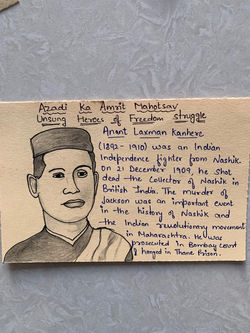 Azadi Ka Amrit Mahotsav
Unsung Heroes of Freedom struggle
Anant Laxman Kanhere
(1892-1910) was an Indian
Independence fighter from Nashik.
On 21 December 1909, he shot
dead the Collector of Nashik in
British India. The murder of
Jackson was an important event
in the history of Nashik and
the Indian revolutionary movement
in Maharashtra. He was
prosecuted in Bombay Court
& hanged in Thane Prison.